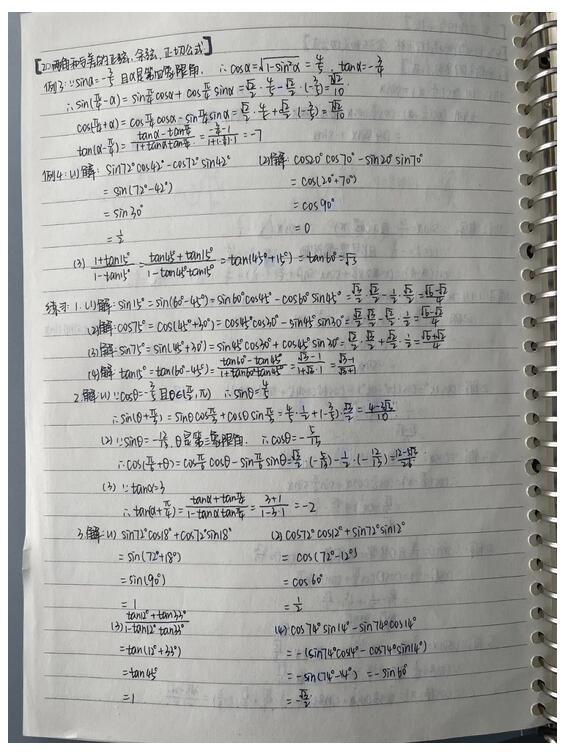 [20.两角和与差的正弦、余弦、正切公式]
例3:∵sinα=-3/5 且α是第四象限角, ∴cosα=√(1-sin²α)=4/5, tanα=-3/4
∴sin(π/4-α)=sinπ/4cosα+cosπ/4sinα=√2/2·4/5-√2/2·(-3/5)=7√2/10
cos(π/4+α)=cosπ/4cosα-sinπ/4sinα=√2/2·4/5+√2/2·(-3/5)=7√2/10
tan(α-π/4)=(tanα-tanπ/4)/(1+tanαtanπ/4)=(-3/4-1)/(1+(-3/4)·1)=-7
例4:(1)解:sin72°cos42°-cos72°sin42° (2)解:cos20°cos70°-sin20°sin70°
=sin(72°-42°) =cos(20°+70°)
=sin30° =cos90°
=1/2 =0
(3)(1+tan15°)/(1-tan15°)=(tan45°+tan15°)/(1-tan45°tan15°)=tan(45°+15°)=tan60°=√3
练习:1.(1)解:sin15°=sin(60°-45°)=sin60°cos45°-cos60°sin45°=√3/2·√2/2-1/2·√2/2=(√6-√2)/4
(2)解:cos75°=cos(45°+30°)=cos45°cos30°-sin45°sin30°=√2/2·√3/2-√2/2·1/2=(√6-√2)/4
(3)解:sin75°=sin(45°+30°)=sin45°cos30°+cos45°sin30°=√2/2·√3/2+√2/2·1/2=(√6+√2)/4
(4)解:tan15°=tan(60°-45°)=(tan60°-tan45°)/(1+tan60°tan45°)=(√3-1)/(1+√3·1)=(√3-1)/(√3+1)
2.解:(1)∵cosθ=-3/5且θ∈(π/2,π) ∴sinθ=4/5
∴sin(θ+π/3)=sinθcosπ/3+cosθsinπ/3=4/5·1/2+(-3/5)·√3/2=(4-3√3)/10
(2)∵sinθ=-12/13,θ是第三象限角, ∴cosθ=-5/13
∴cos(π/6+θ)=cosπ/6cosθ-sinπ/6sinθ=√3/2·(-5/13)-1/2·(-12/13)=(12-5√3)/26
(3)∵tanα=3
∴tan(α+π/4)=(tanα+tanπ/4)/(1-tanαtanπ/4)=(3+1)/(1-3·1)=-2
3.解:(1)sin72°cos18°+cos72°sin18° (2)cos72°cos12°+sin72°sin12°
=sin(72°+18°) =cos(72°-12°)
=sin(90°) =cos60°
=1 =1/2
(3)(tan12°+tan33°)/(1-tan12°tan33°) (4)cos74°sin14°-sin74°cos14°
=tan(12°+33°) =-(sin74°cos14°-cos74°sin14°)
=tan45° =-sin(74°-14°)=-sin60°
=1 =-√3/2